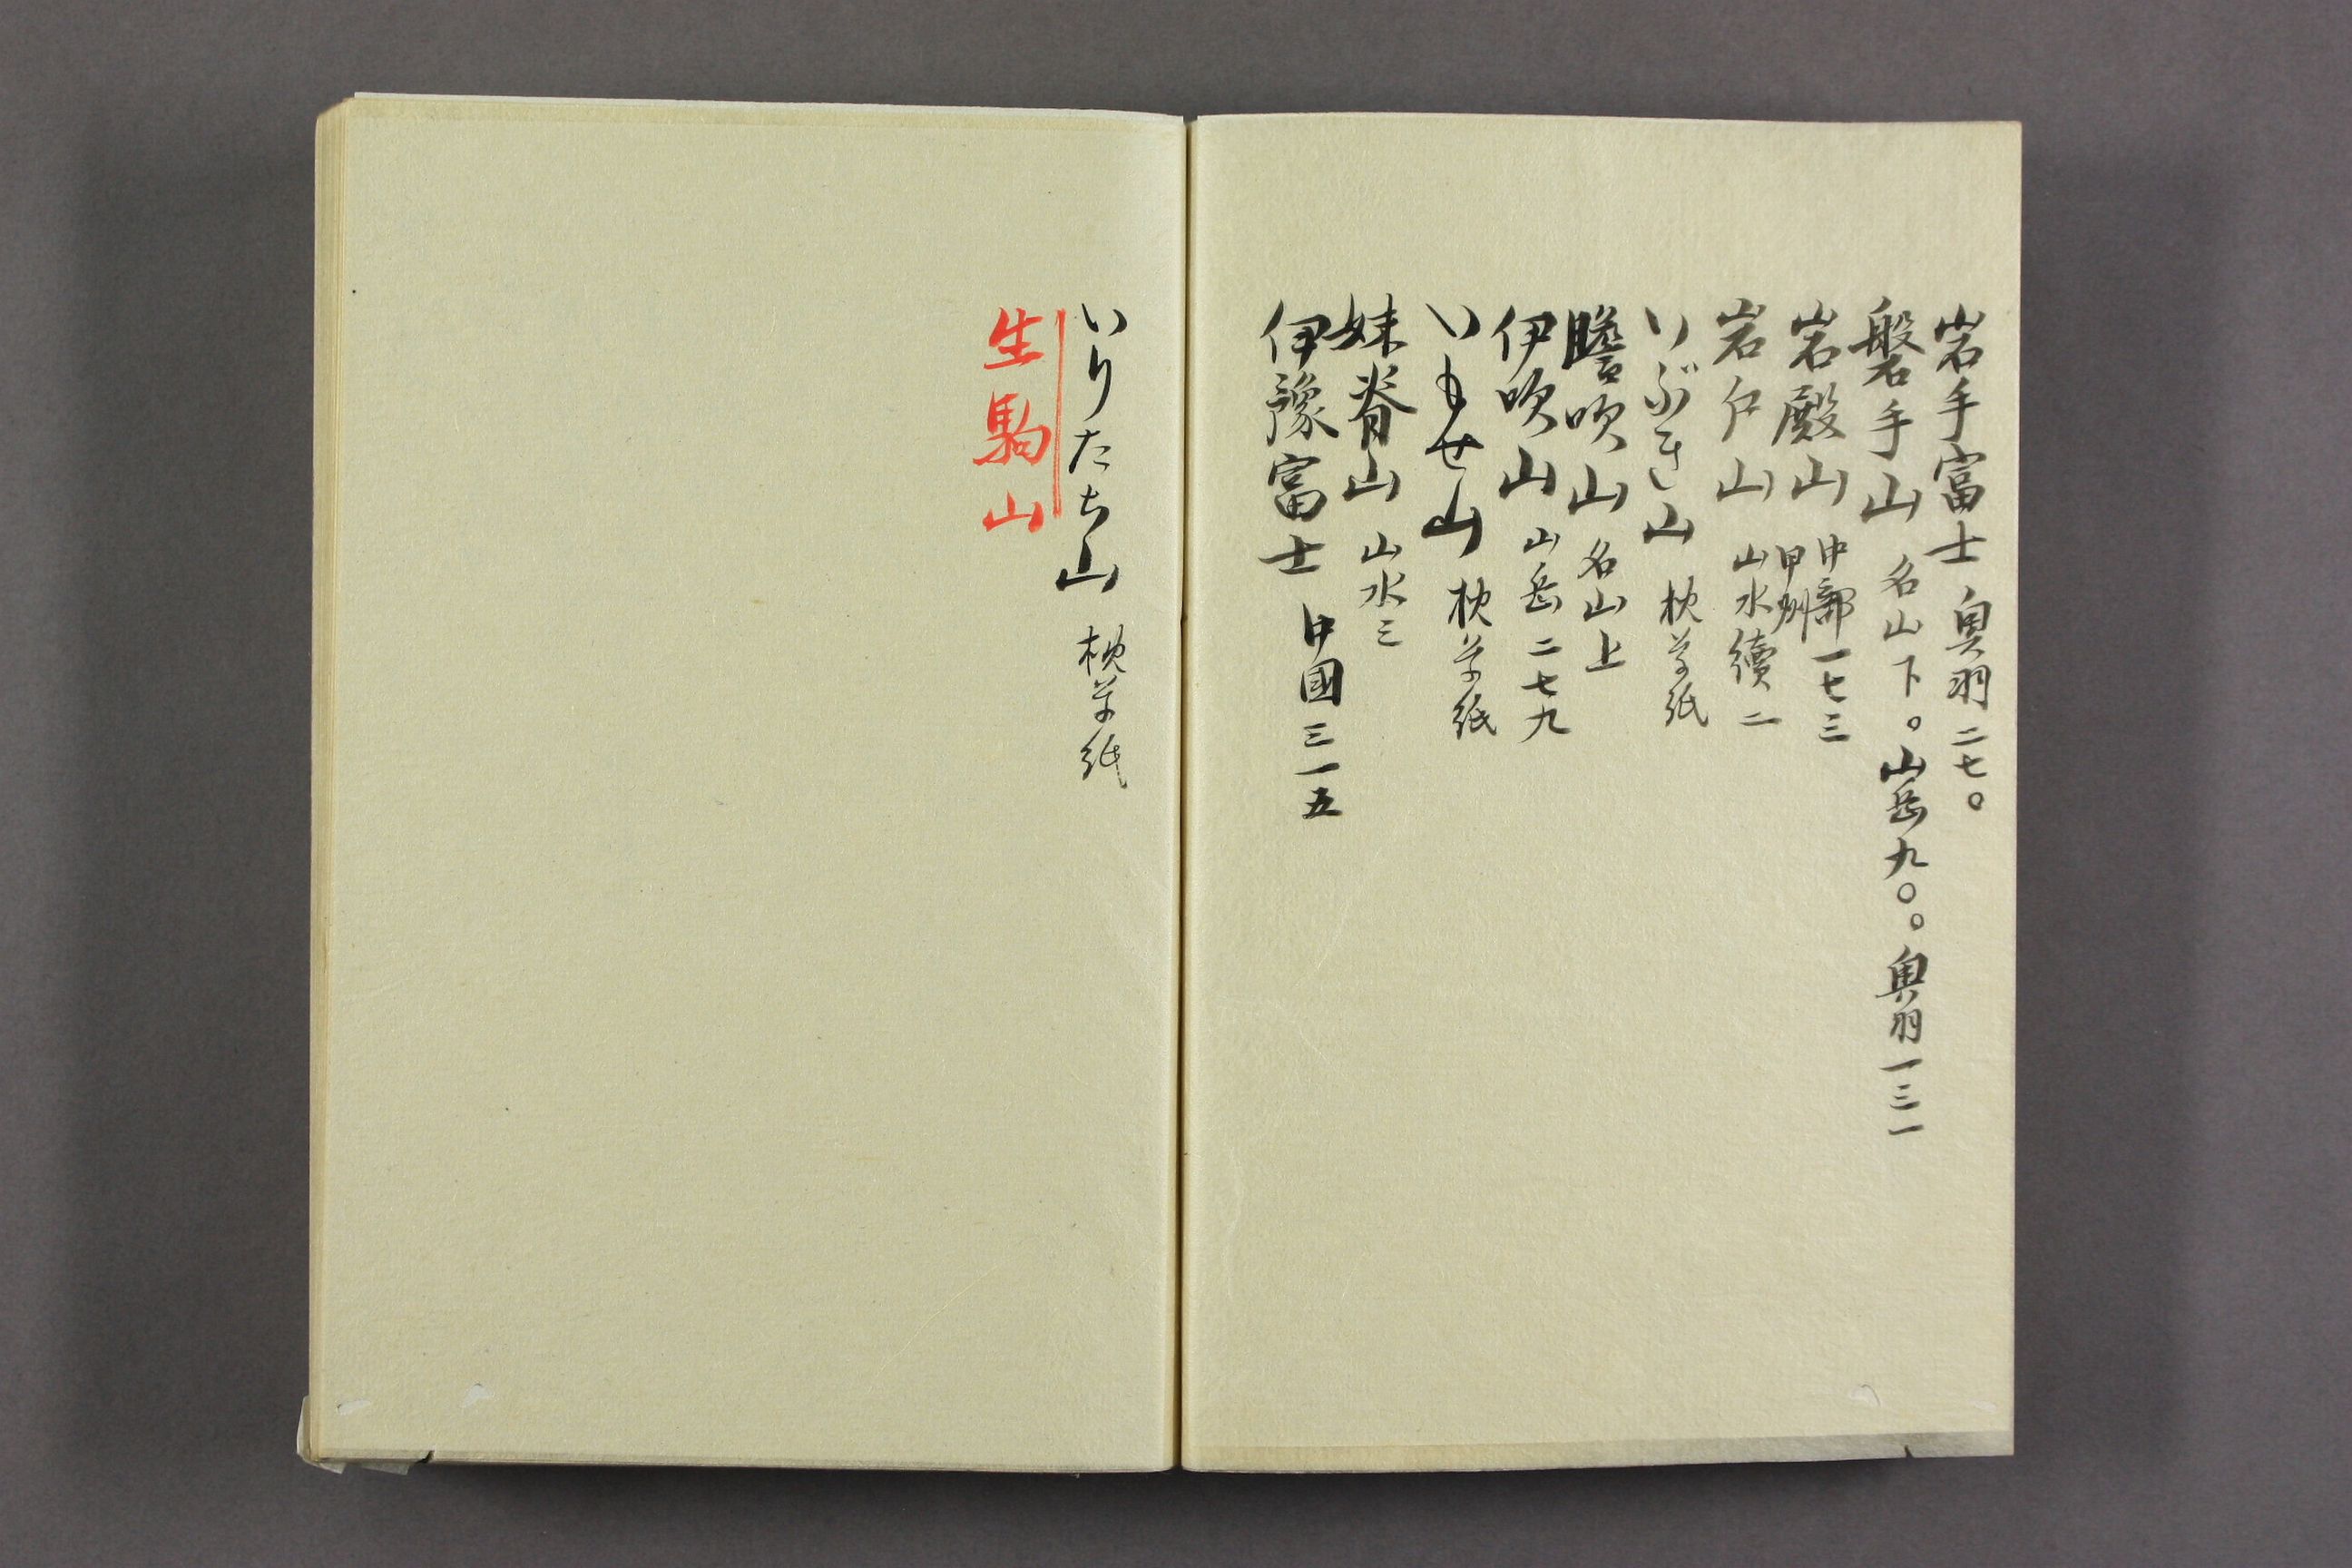 岩手富士 奥羽二七〇
磐手山 名山下。山岳九〇。奥羽一三一
岩殿山 中部一七三
甲州
岩戸山 山水續二
いぶき山 枕草紙
膽吹山 名山上
伊吹山 山岳二七九
いもせ山 枕草紙
妹脊山 山水三
伊豫富士 中國三一五
いりたち山 枕草紙
生駒山